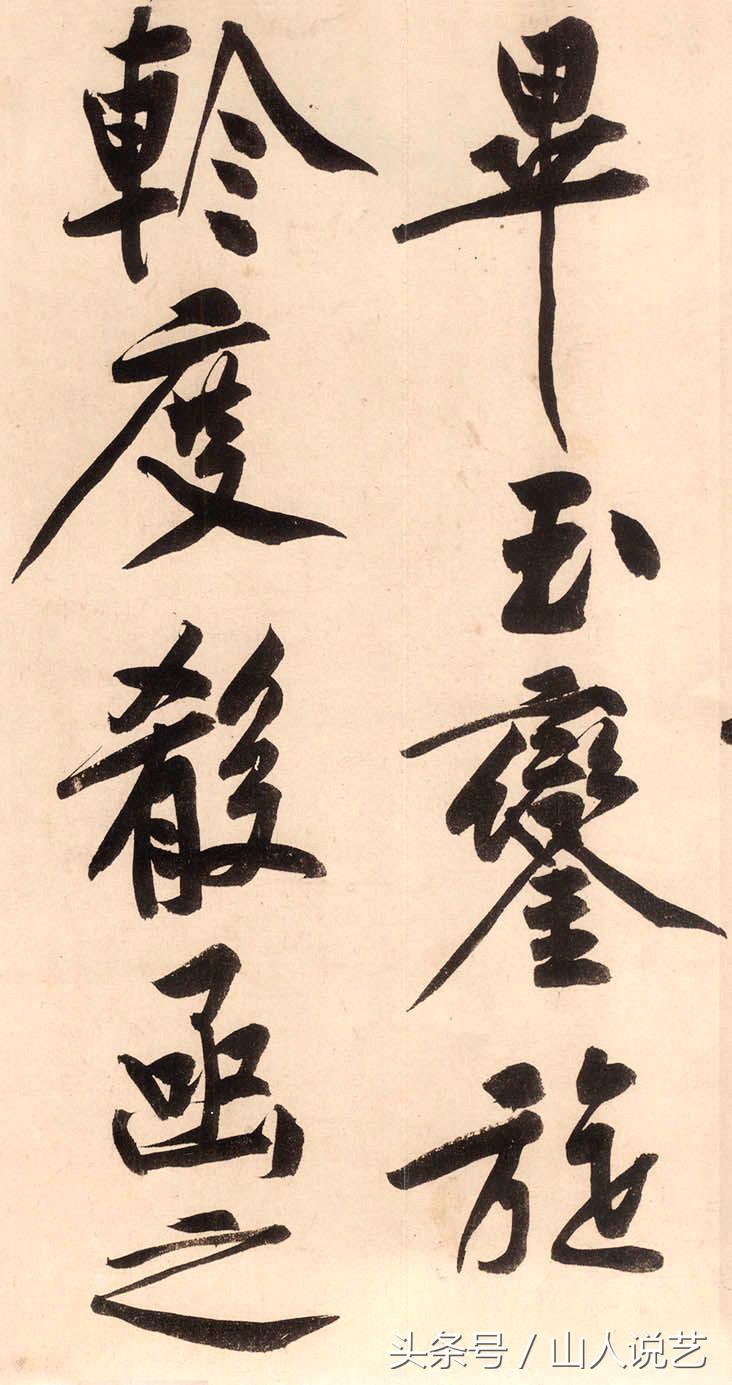 畢玉鑾旋
軫度殽函之
头条号 / 山人说艺